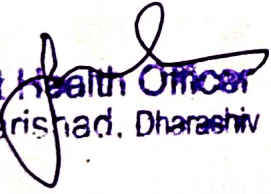 t Health Officer
arishad, Dharashiv